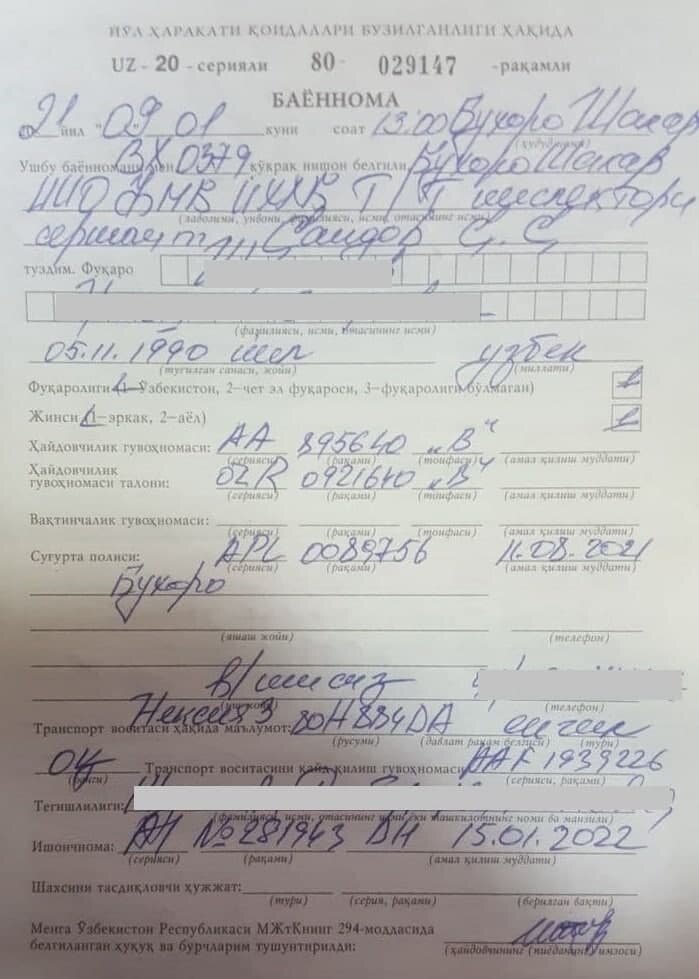 ЙЎЛ ҲАРАКАТИ ҚОИДАЛАРИ БУЗИЛГАНЛИГИ ҲАҚИДА
UZ - 20 - серияли 80 - 029147 -рақамли
БАЁННОМА
21 йил "09" 01 куни соат 13:00 Бухоро Шаҳар
(ҳудуднинг)
Ушбу баённомани мен ВХ 0379 кўкрак нишон белгили Бухоро Шаҳар
ИИО ФМБ ЙҲХБ Т/Т инспектори
(лавозими, унвони, фамилияси, исми, отасининг исми)
сержант Саидов С. С
туздим. Фуқаро
(фамилияси, исми, отасининг исми)
05.11.1990 йил ўзбек
(туғилган санаси, жойи) (миллати)
Фуқаролиги (1-Ўзбекистон, 2-чет эл фуқароси, 3-фуқаролиги бўлмаган) 1
Жинси (1-эркак, 2-аёл) 1
Ҳайдовчилик гувоҳномаси: АА 895640 „В"
(серияси) (рақами) (тоифаси) (амал қилиш муддати)
Ҳайдовчилик
гувоҳномаси талони: 02R 0921640 „В"
(серияси) (рақами) (тоифаси) (амал қилиш муддати)
Вақтинчалик гувоҳномаси:
(серияси) (рақами) (тоифаси) (амал қилиш муддати)
Суғурта полиси: APL 0089756 11.08.2021
(серияси) (рақами) (амал қилиш муддати)
Бухоро
(яшаш жойи) (телефон)
в/ишсиз
(иш жойи) (телефон)
Транспорт воситаси ҳақида маълумот: Нексия 3 80H884DA енгил
(русуми) (давлат рақам белгиси) (тури)
оқ Транспорт воситасини қайд қилиш гувоҳномаси AAF 1939226
(ранги) (серияси, рақами)
Тегишлилиги:
(фамилияси, исми, отасининг исми, ёки ташкилотнинг номи ва манзили)
Ишончнома: АН №281943 DH 15.01.2022
(серияси) (рақами) (амал қилиш муддати)
Шахсини тасдиқловчи ҳужжат:
(тури) (серия, рақами) (берилган вақти)
Менга Ўзбекистон Республикаси МЖтКнинг 294-моддасида
белгиланган ҳуқуқ ва бурчларим тушунтирилди:
(ҳайдовчининг (пиёданинг) имзоси)